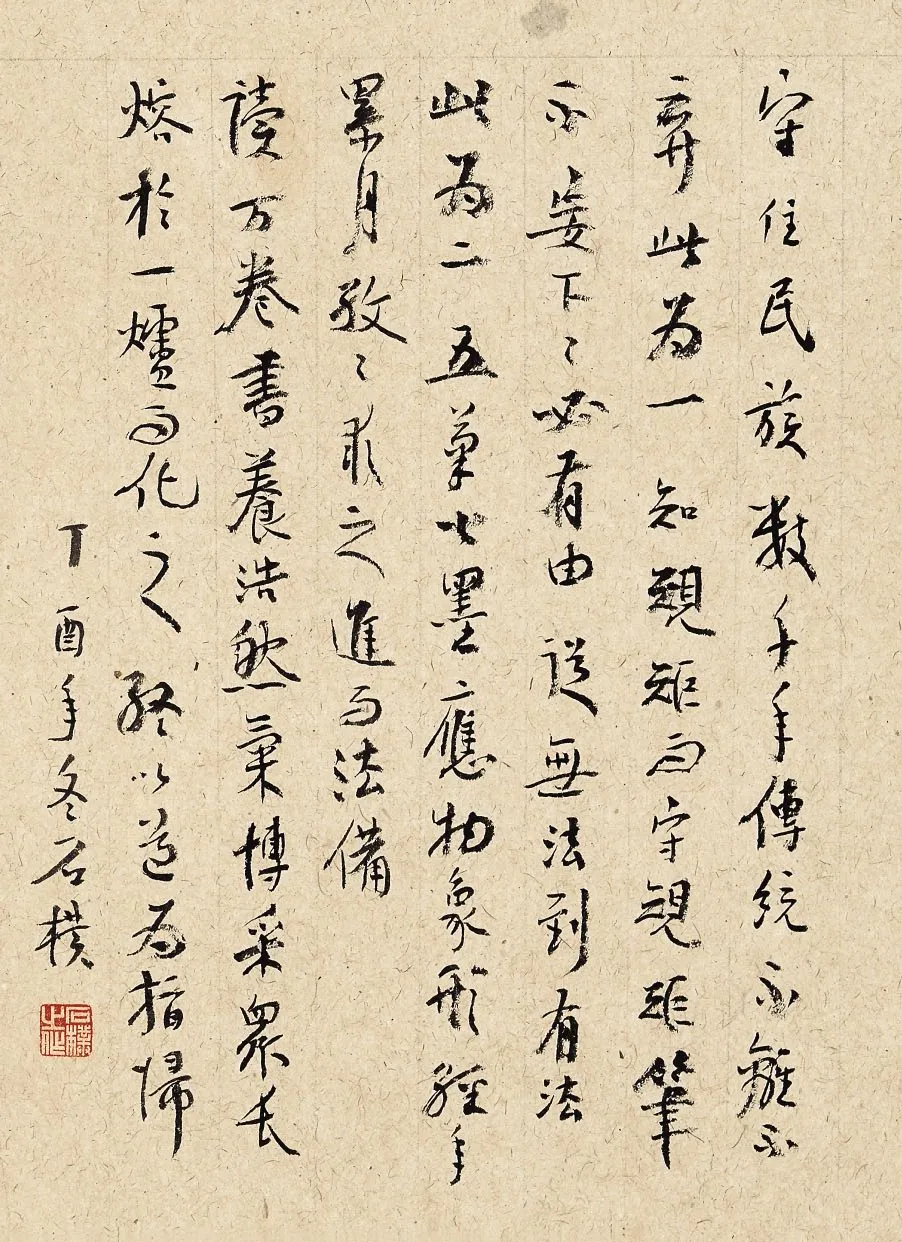 守住民族數千年傳統不離不
棄此為一知規矩而守規距筆
不妄下〻必有由從無法到有法
此為二五筆七墨應物象形經年
累月孜〻求之進而法備
讀万卷書養浩然氣博采眾长
熔於一爐而化之終以道為指歸
丁酉年冬石樸